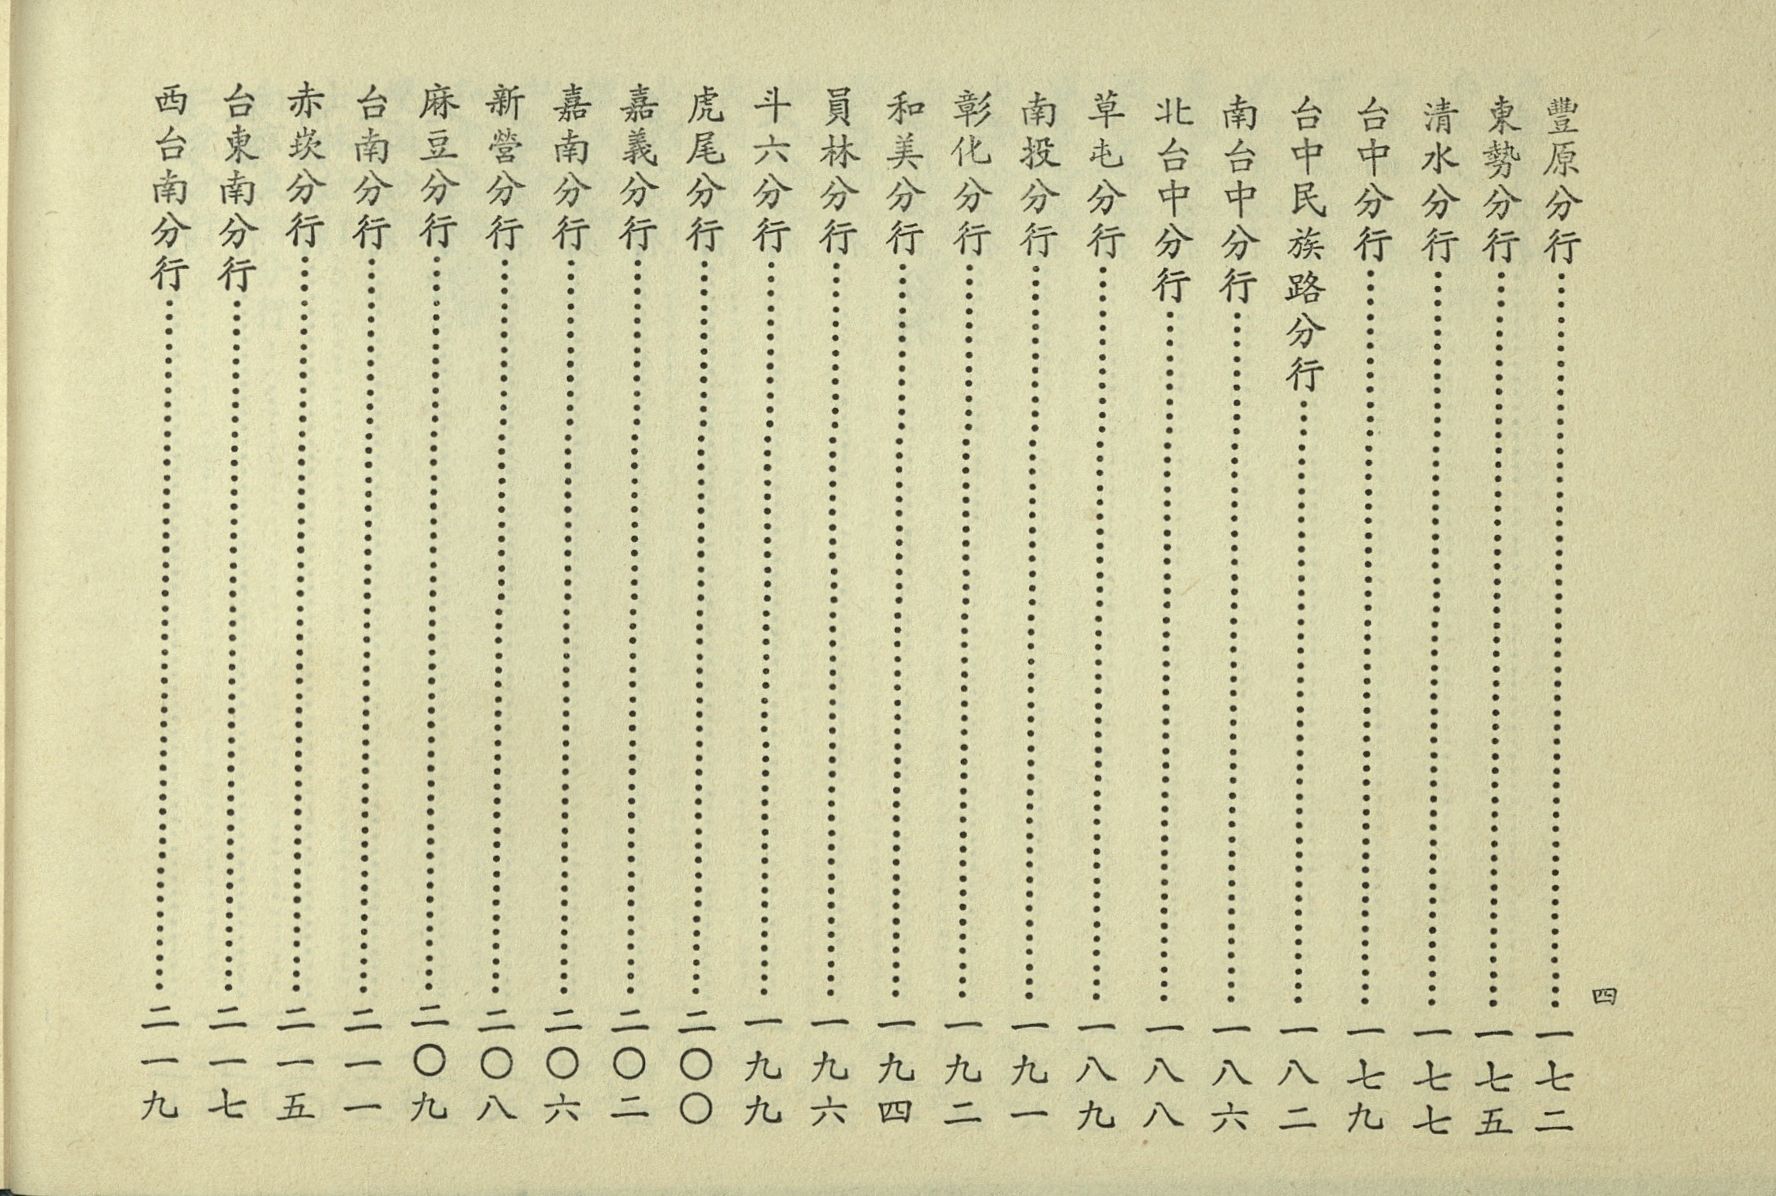 四
豐原分行………一七二
東勢分行………一七五
清水分行………一七七
台中分行………一七九
台中民族路分行………一八二
南台中分行………一八六
北台中分行………一八八
草屯分行………一八九
南投分行………一九一
彰化分行………一九二
和美分行………一九四
員林分行………一九六
斗六分行………一九九
虎尾分行………二〇〇
嘉義分行………二〇二
嘉南分行………二〇六
新營分行………二〇八
麻豆分行………二〇九
台南分行………二一一
赤崁分行………二一五
台東南分行………二一七
西台南分行………二一九